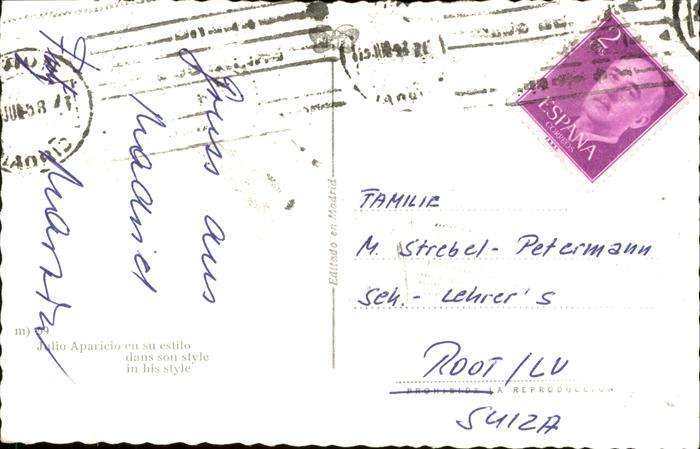 Gruss aus
Madrid
2
ESPAÑA
CORREOS
Editado en Madrid
FAMILIE
M. Strebel - Petermann
Sek. - Lehrer's
ROOT / LU
PROHIBIDA LA REPRODUCCION
SUIZA
Julio Aparicio en su estilo
dans son style
in his style